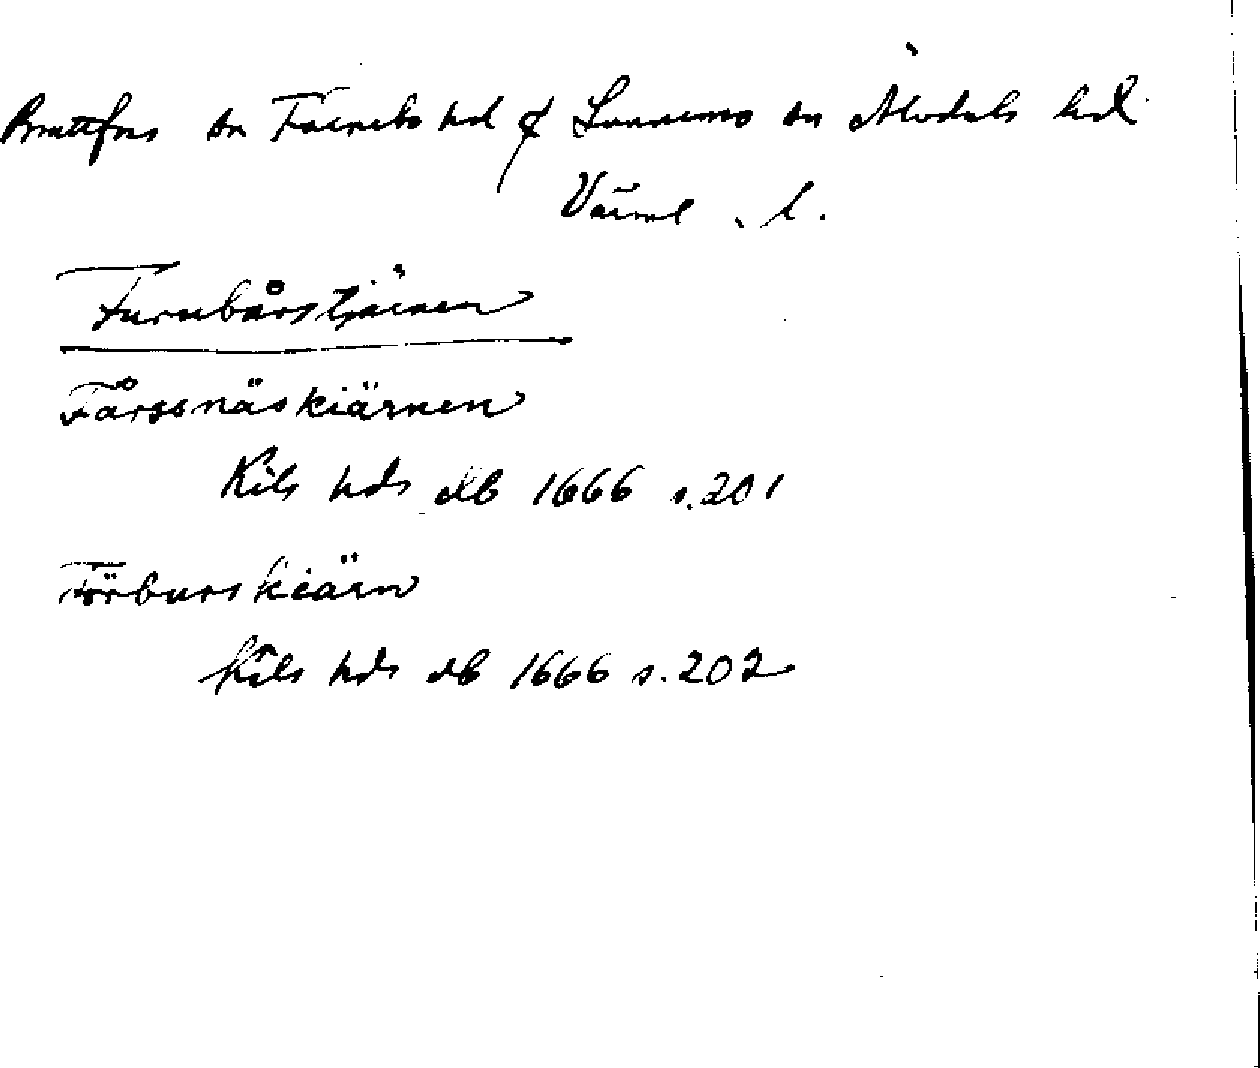 Brattfors sn Färnebo hd & Lunnemo sn Älvdals hd
Värml. l.
Furubårstjärnen
Fårssnäskiärnen
Kils hds db 1666 s. 201
Förburskiärn
Kils hds db 1666 s. 202